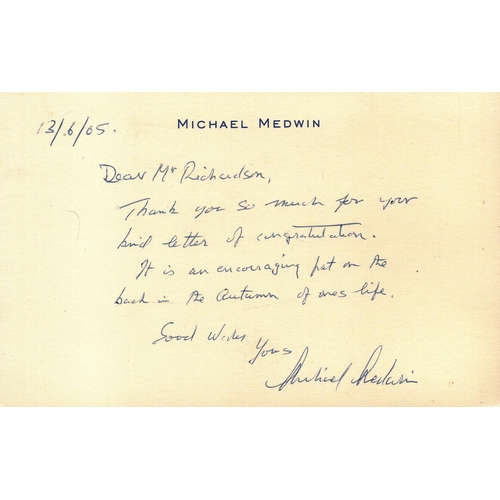 13/6/05.
MICHAEL MEDWIN
Dear Mr Richardson,
Thank you so much for your
kind letter of congratulation.
It is an encouraging pat on the
back in the Autumn of ones life.
Good Wishes
Yours
Michael Medwin